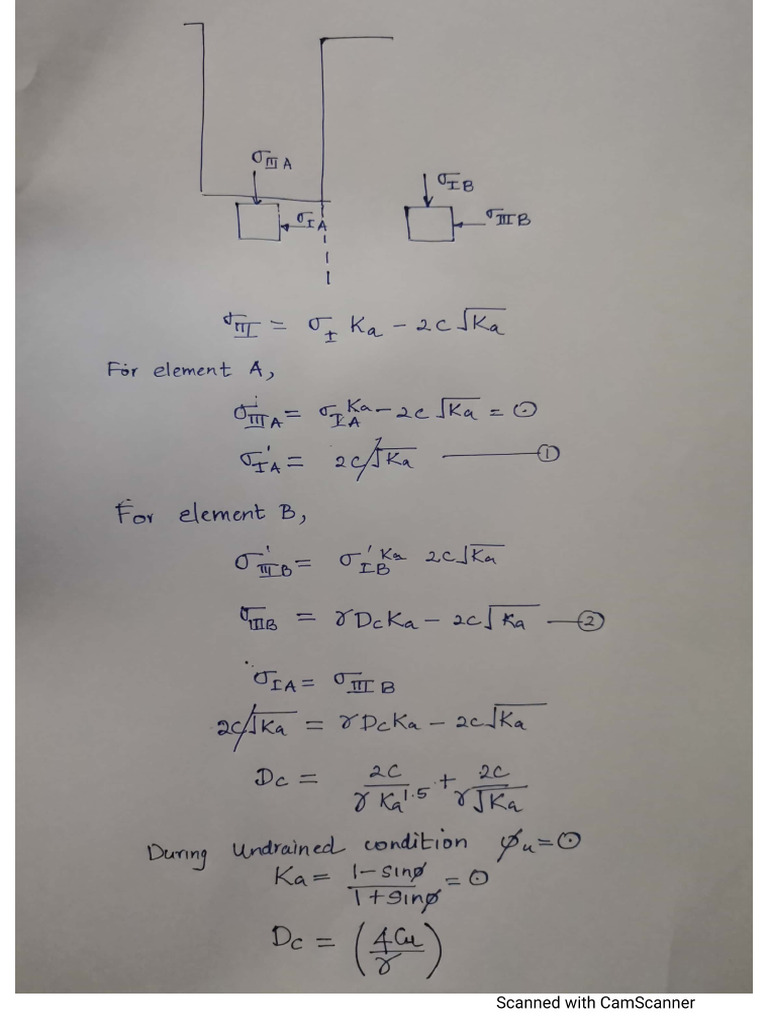 σIII A
σI B
σI A
σIII B
σIII = σI Ka - 2c√Ka
For element A,
σ'III A = σI A Ka - 2c√Ka = 0
σ'I A = 2c/√Ka ——— ①
For element B,
σ'III B = σ'I B Ka 2c√Ka
σIII B = γDcKa - 2c√Ka — ②
∵ σI A = σIII B
2c/√Ka = γDcKa - 2c√Ka
Dc = 2c/γKa^1.5 + 2c/γ√Ka
During Undrained condition φu = 0
Ka = 1-sinφ/1+sinφ = 0
Dc = (4Cu/γ)
Scanned with CamScanner